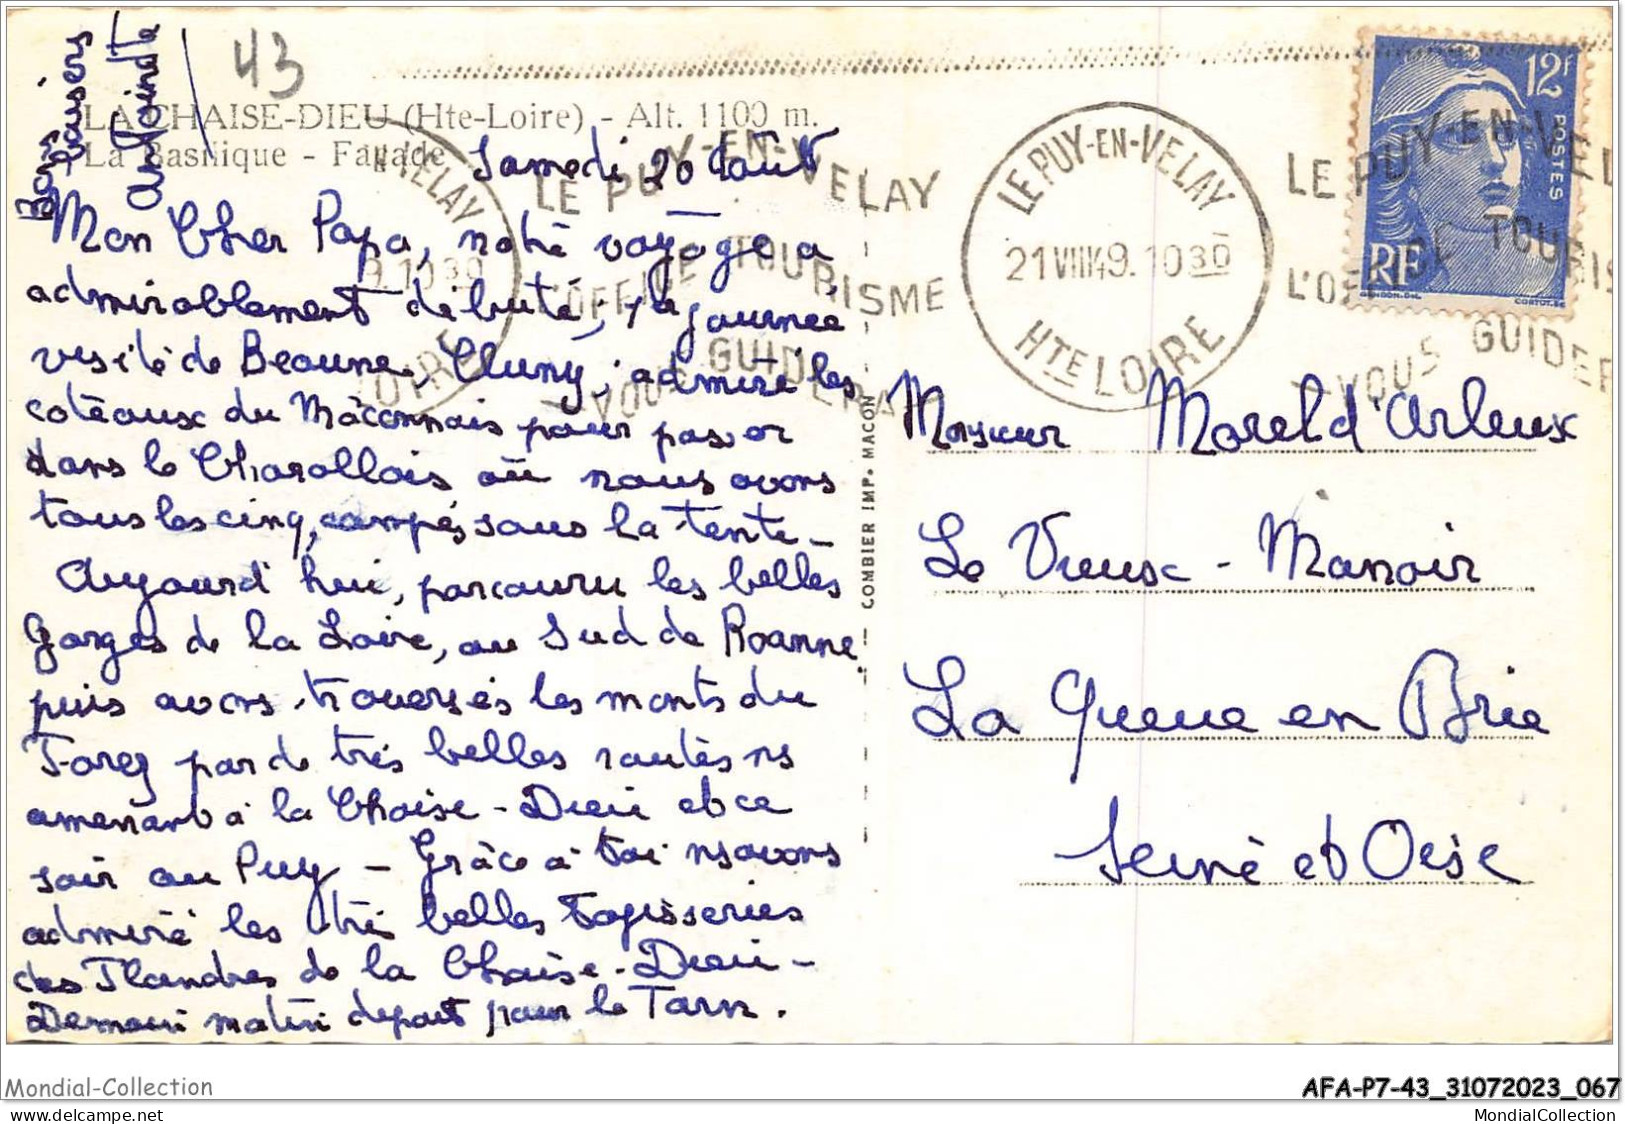 43
LA CHAISE-DIEU (Hte-Loire) - Alt. 1100 m.
La Basilique - Façade
Samedi 20 Août
Mon Cher Papa, notre voyage a
admirablement débuté, 1e journée
visité de Beaune, Cluny, admiré les
coteaux du Mâconnais pour passer
dans le Charollais où nous avons
tous les cinq, campés sous la tente -
Aujourd'hui, parcouru les belles
Gorges de la Loire, au Sud de Roanne
puis avons traversés les monts du
Forez par de très belles routes ns
amenant à la Chaise-Dieu et ce
soir au Puy - Grâce à toi ns avons
admiré les très belles tapisseries
des Flandres de la Chaise-Dieu -
Demain matin départ pour le Tarn.
Bons baisers
LE PUY-EN-VELAY
21 VIII 49. 10 30
HTE LOIRE
LE PUY-EN-VELAY
L'OFFICE TOURISME
VOUS GUIDERA
VELAY
9. 10 30
LOIRE
LE PUY-EN-VEL
L'OFFICE TOURIS
VOUS GUIDER
12F
POSTES
RF
GANDON.DEL
CORTOT.SC
COMBIER IMP. MACON
Monsieur Morel d'Arleux
Le Vieux-Manoir
La Queue en Brie
Seine et Oise
Mondial-Collection
AFA-P7-43_31072023_067
www.delcampe.net
MondialCollection